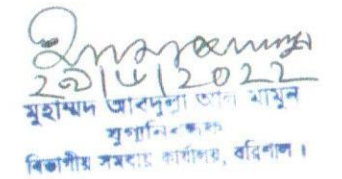 ২৯/৮/2022
মুহাম্মদ আবদুল্লা আল মামুন
যুগ্মনিবন্ধক
বিভাগীয় সমবায় কার্যালয়, বরিশাল।